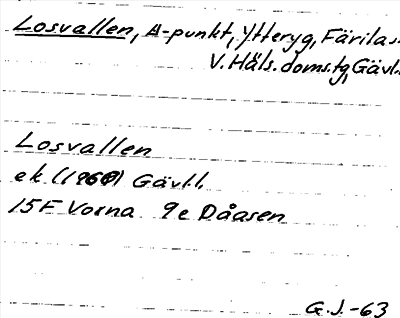 Losvallen, A-punkt, Ytteryg, Färila s.
V. Häls. doms.tg, Gävl.
Losvallen
ek. (1960) Gävl.l.
15F Voxna 9e Dåasen
G.J.-63